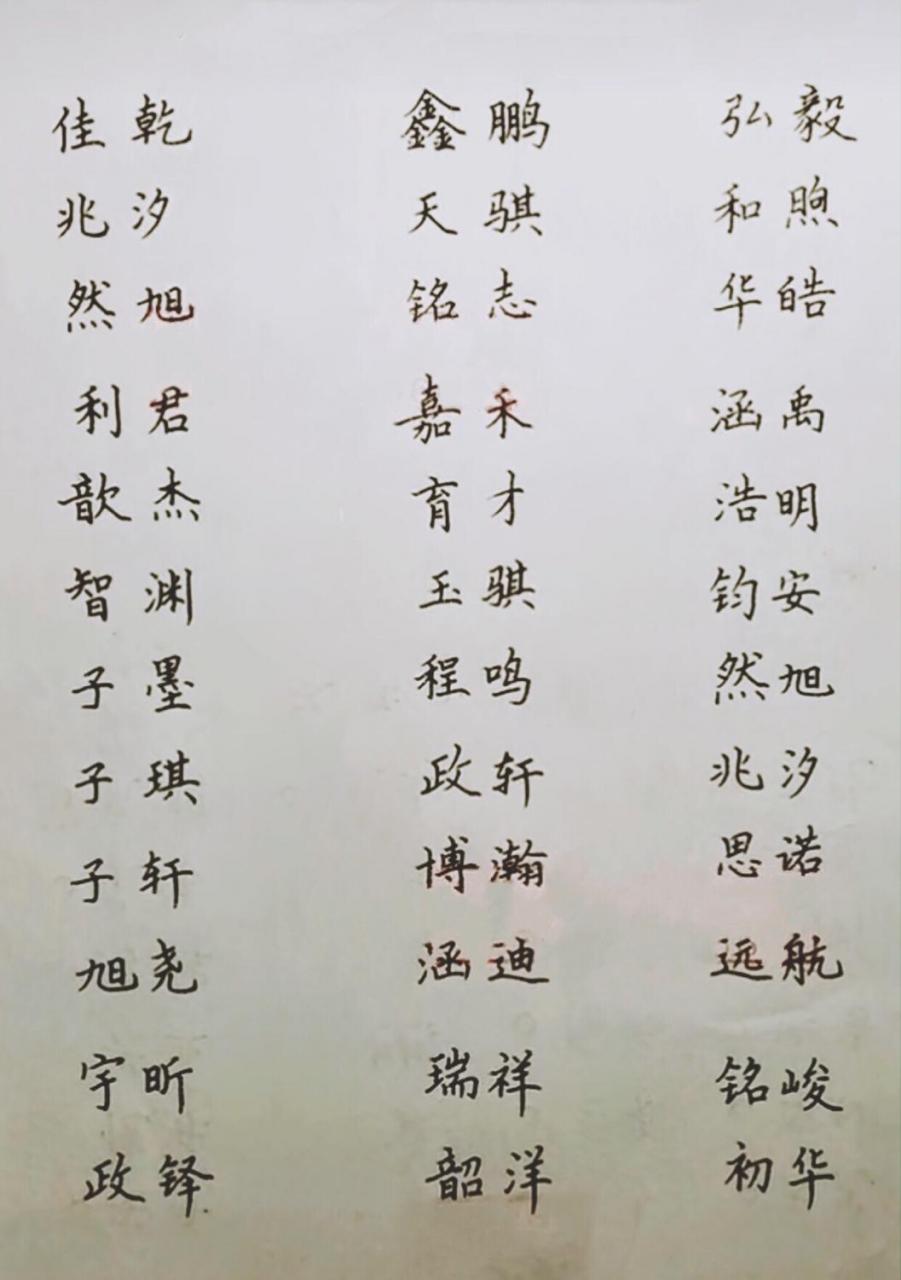 佳乾 鑫鹏 弘毅
兆汐 天骐 和煦
然旭 铭志 华皓
利君 嘉禾 涵禹
歆杰 育才 浩明
智渊 玉骐 钧安
子墨 程鸣 然旭
子琪 政轩 兆汐
子轩 博瀚 思诺
旭尧 涵迪 远航
宇昕 瑞祥 铭峻
政铎 韶洋 初华